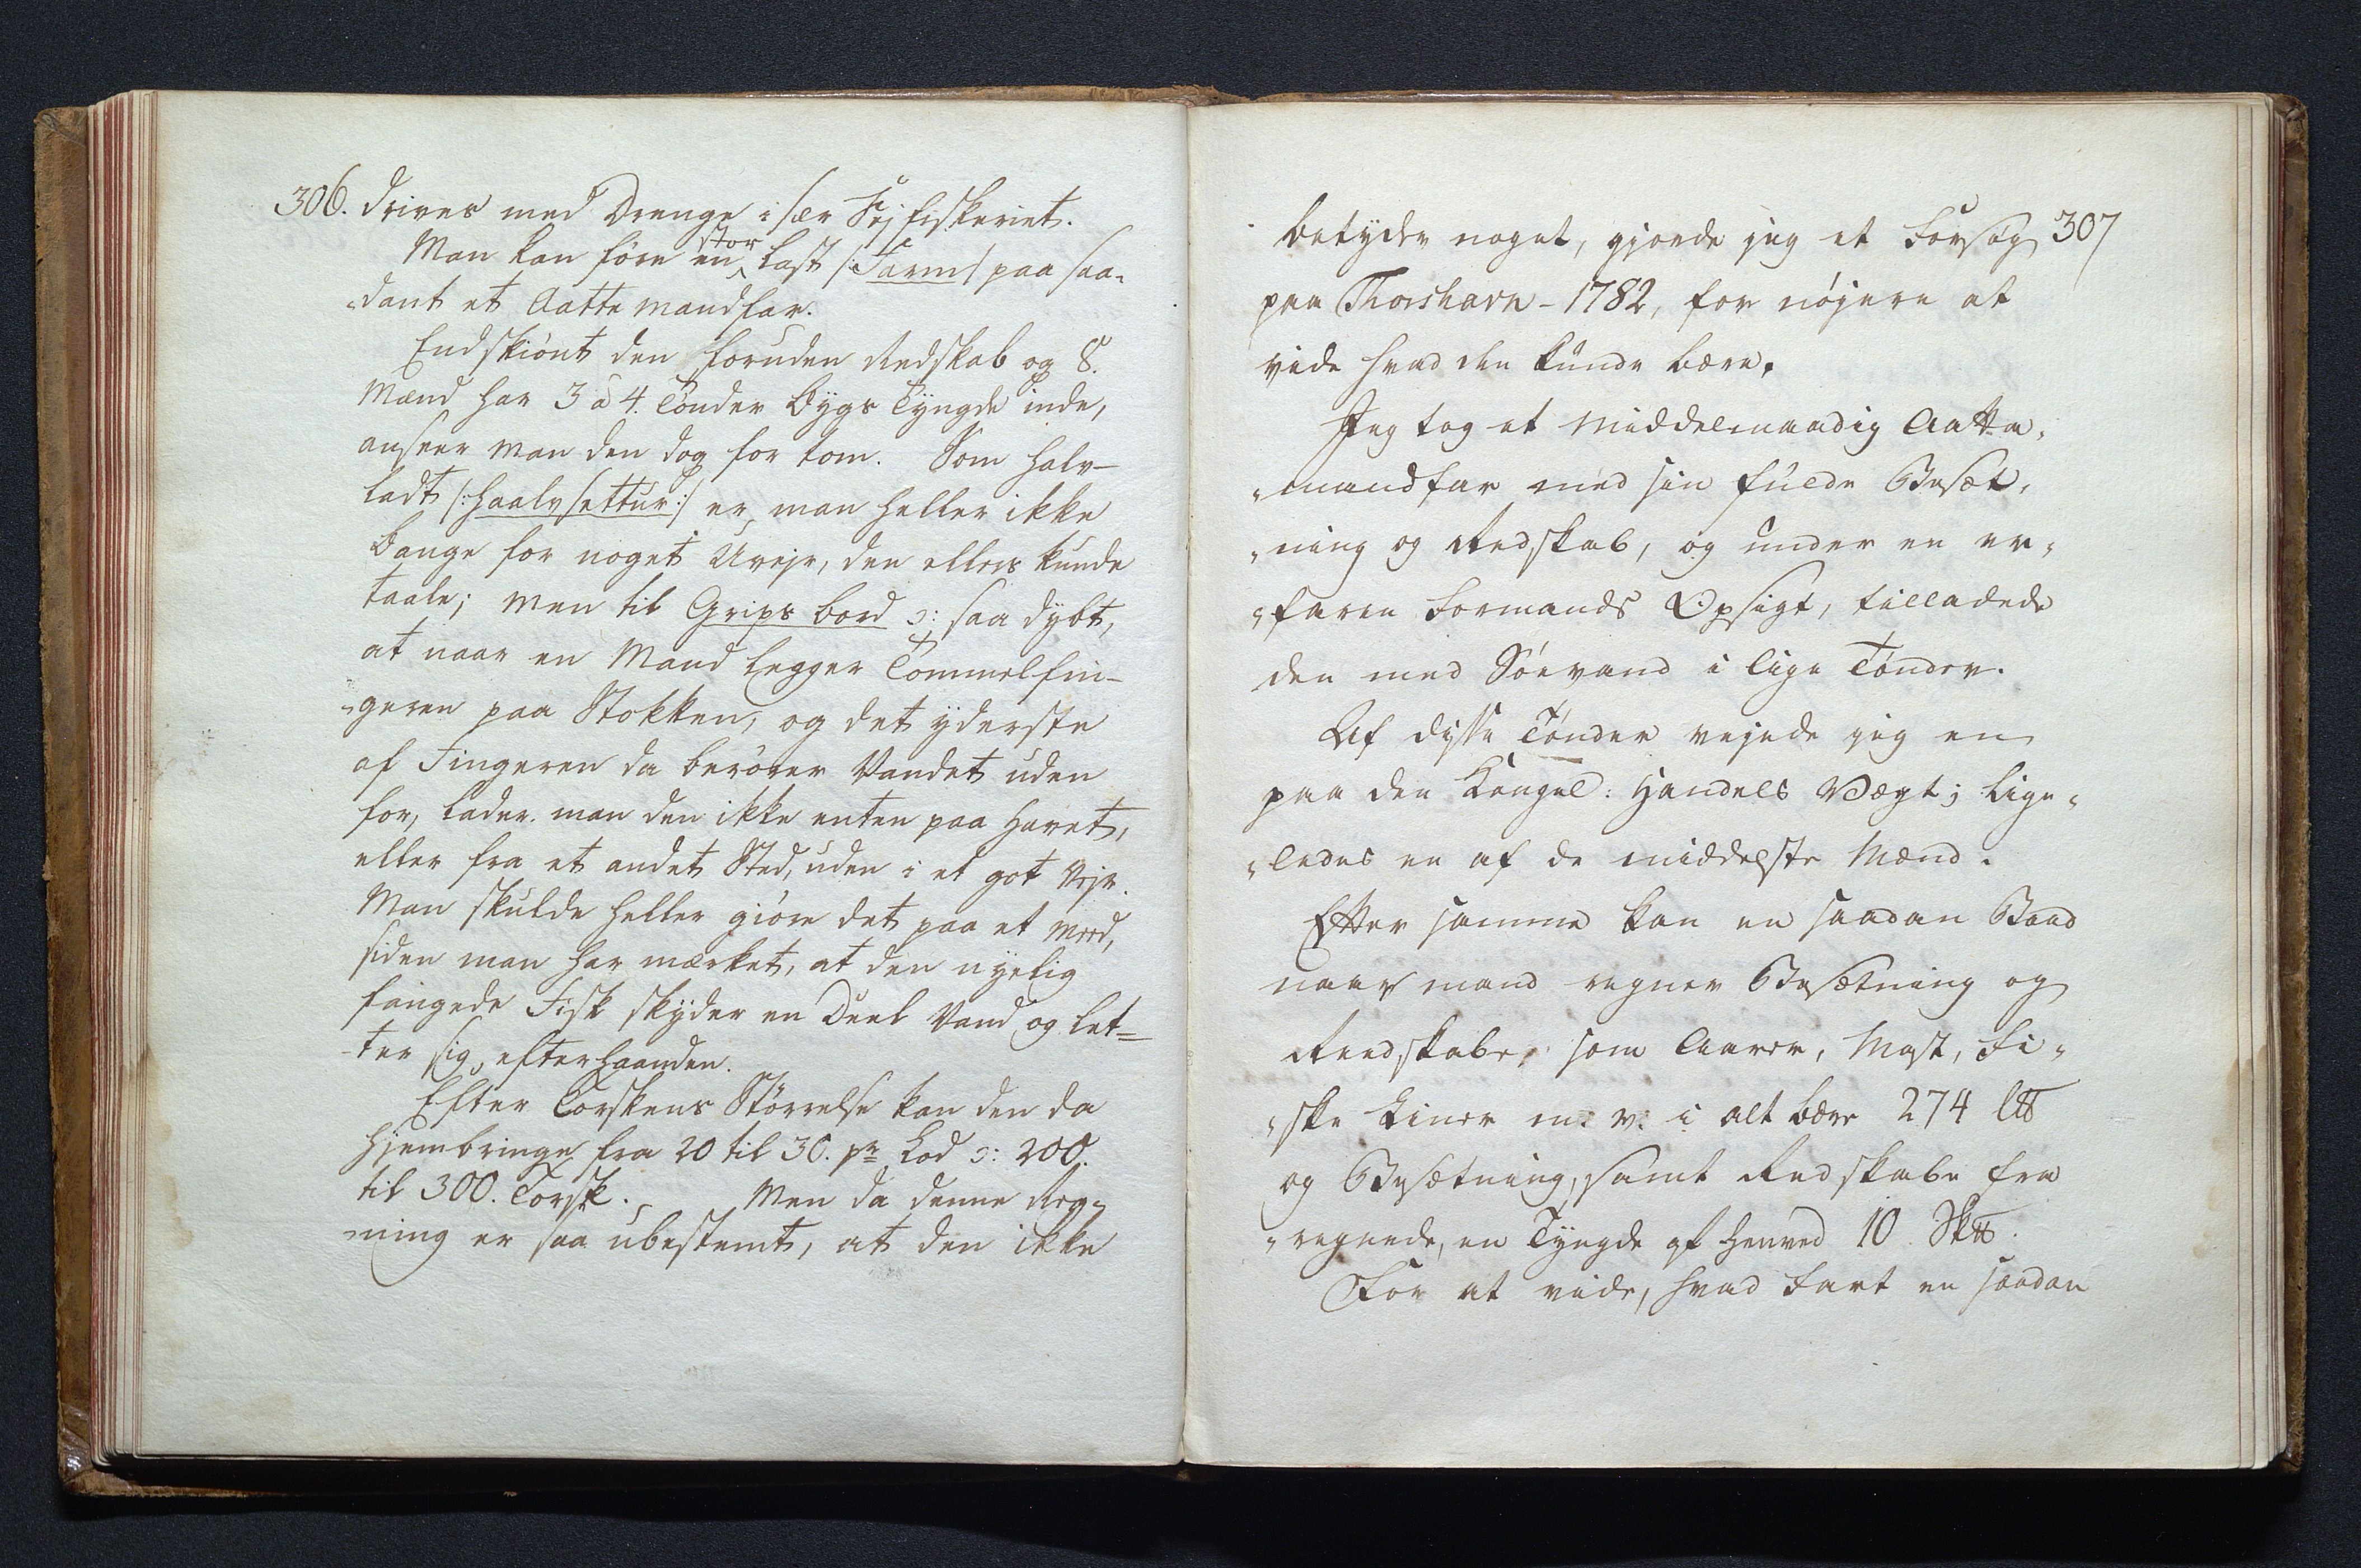 306. drives med Drenge i sær Sejfiskeriet.
Man kan före en stor Last /: Farm / paa saa-
-dant et Aattemandfar.
Endskiönt den foruden Redskab og 8.
Mænd har 3 a 4. Tönder Bygs Tyngde inde,
anseer man den dog for tom. Som halv-
ladt /: haalv settur :/ er man heller ikke
bange for noget Uvejr, den ellers kunde
taale; men til Grips bord ɔ: saa dybt,
at naar en Mand legger Tommelfin-
-geren paa Stokken, og det yderste
af Fingeren da berörer Vandet uden
for, lader man den ikke enten paa Havet,
eller fra et andet Sted, uden i et got Vejr.
Man skulde heller giöre det paa et Meed,
siden man har mærket, at den nyelig
fangede Fisk skyder en Deel Vand og let-
-ter sig efterhaanden.
Efter Torskens Störrelse kan den da
hjembringe fra 20 til 30. pr Lod ɔ: 200.
til 300. Torsk. Men da denne Reg-
-ning er saa ubestemt, at den ikke
betyder noget, gjorde jeg et Forsög 307
paa Thorshavn - 1782, for nöjere at
vide hvad den kunde bære.
Jeg tog et middelmaadig Aatta-
-mandfar med sin fulde Besæt-
-ning og Redskab, og under en er-
-faren Formands Opsigt, tilladede
den med Söevand i lige Tönder.
Af disse Tönder vejede jeg en
paa den Kongel: Handels Vægt; lige-
-ledes en af de middelste Mænd.
Efter samme kan en saadan Baad
naar mand regner Besætning og
Reedskabe, som Aarer, Mast, Fi-
-ske Liner m: v: i alt bære 274 L℔
og Besætning, samt Redskabe fra
-regnede, en Tyngde af henved 10 Sk℔.
For at vide, hvad Fart en saadan